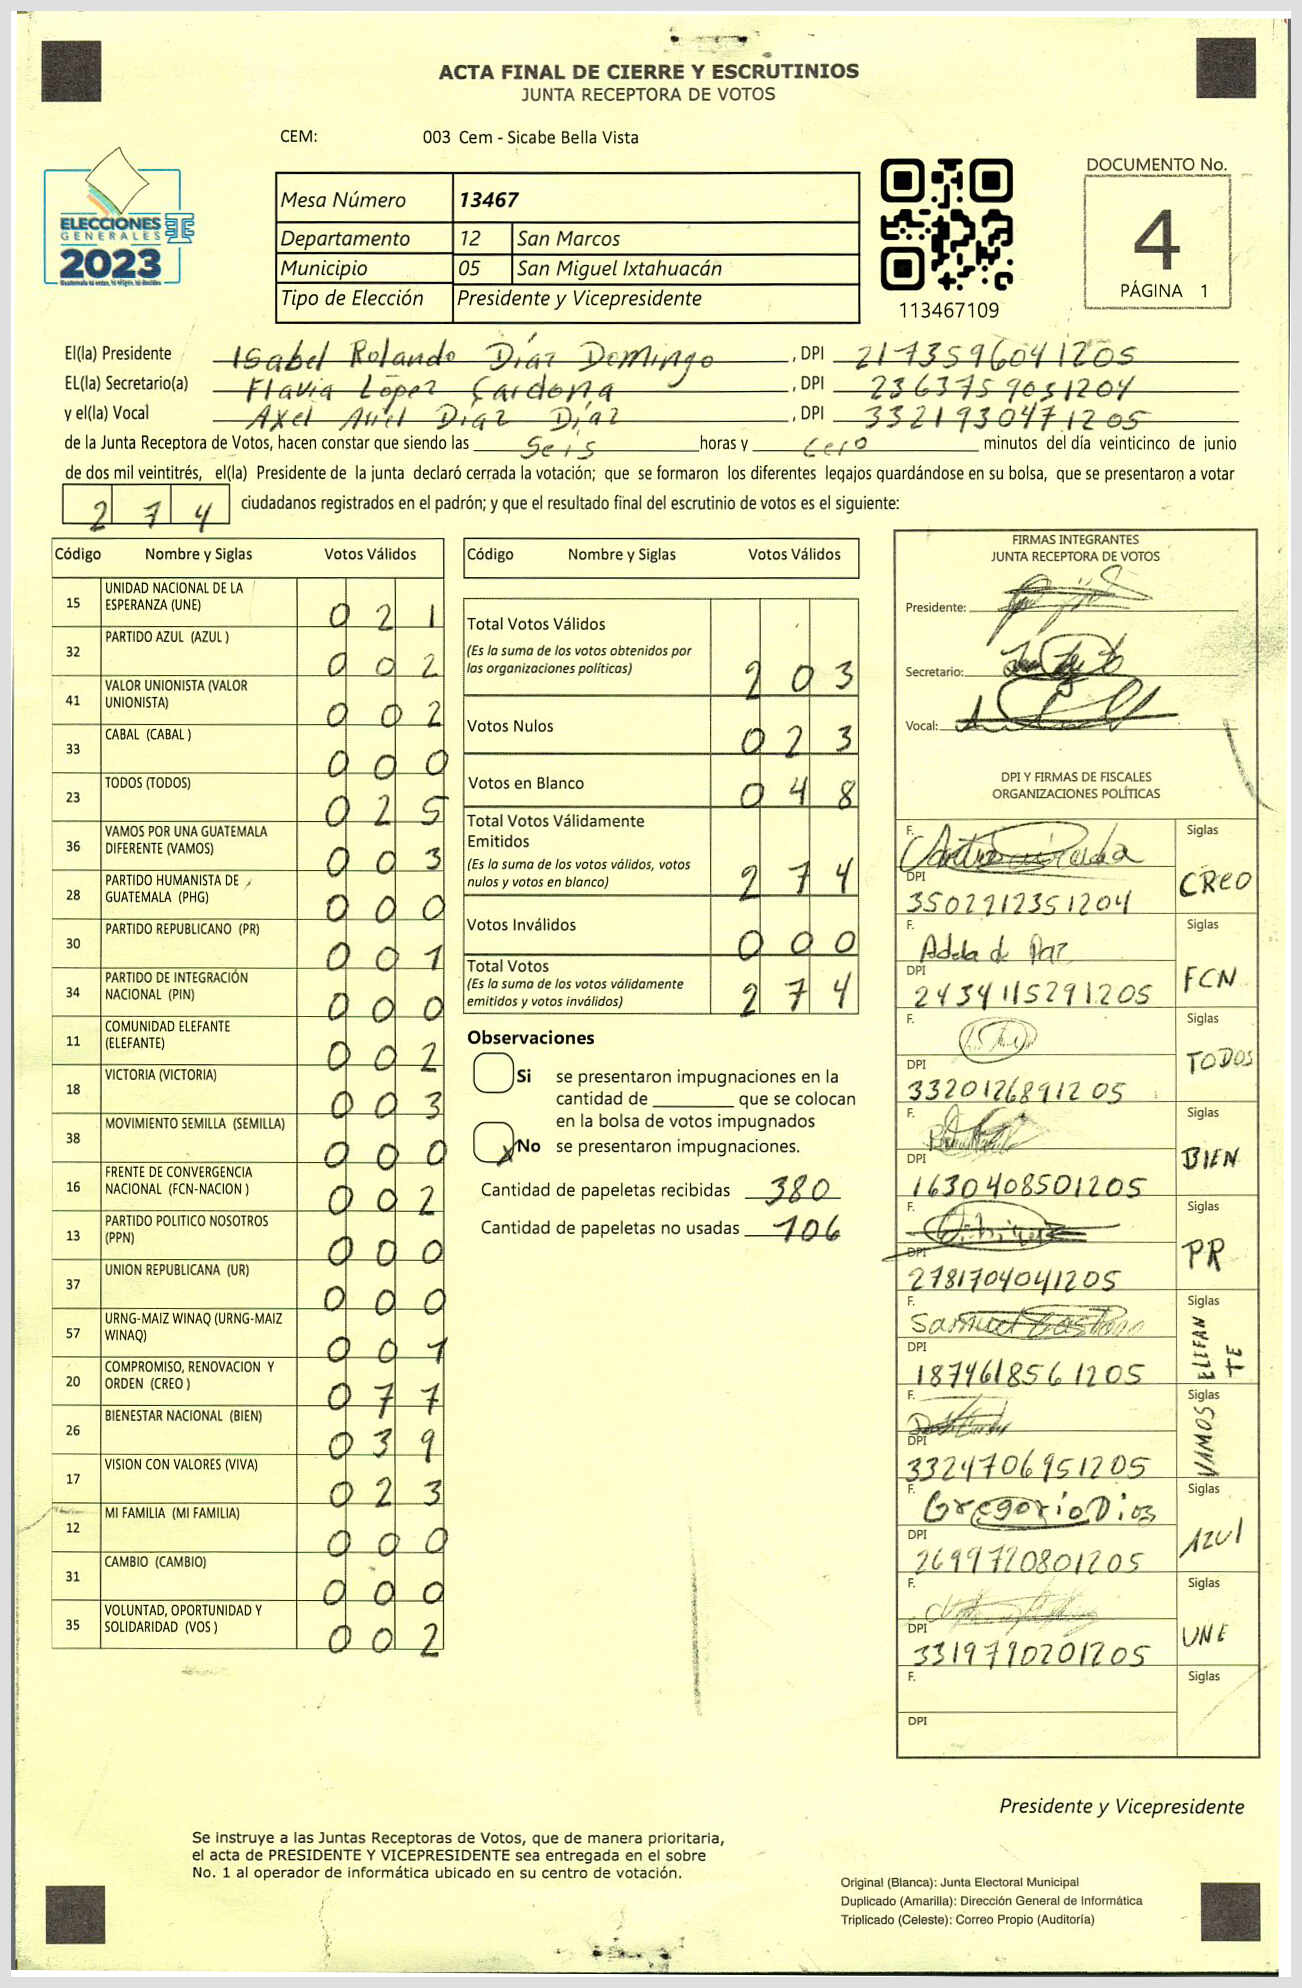 ACTA FINAL DE CIERRE Y ESCRUTINIOS
JUNTA RECEPTORA DE VOTOS
CEM: 003 Cem - Sicabe Bella Vista
ELECCIONES
GENERALES
2023
Mesa Número 13467
Departamento 12 San Marcos
Municipio 05 San Miguel Ixtahuacán
Tipo de Elección Presidente y Vicepresidente
113467109
DOCUMENTO No.
4
PÁGINA 1
El(la) Presidente Isabel Rolando Díaz Domingo , DPI 2173596041205
EL(la) Secretario(a) Flavia López Cardona , DPI 2363759051204
y el(la) Vocal Axel Ariel Díaz Díaz , DPI 3321930471205
de la Junta Receptora de Votos, hacen constar que siendo las seis horas y cero minutos del día veinticinco de junio
de dos mil veintitrés, el(la) Presidente de la junta declaró cerrada la votación; que se formaron los diferentes legajos guardándose en su bolsa, que se presentaron a votar
274 ciudadanos registrados en el padrón; y que el resultado final del escrutinio de votos es el siguiente:
Código Nombre y Siglas Votos Válidos
15 UNIDAD NACIONAL DE LA
ESPERANZA (UNE) 021
32 PARTIDO AZUL (AZUL ) 002
41 VALOR UNIONISTA (VALOR
UNIONISTA) 002
33 CABAL (CABAL ) 000
23 TODOS (TODOS) 025
36 VAMOS POR UNA GUATEMALA
DIFERENTE (VAMOS) 003
28 PARTIDO HUMANISTA DE
GUATEMALA (PHG) 000
30 PARTIDO REPUBLICANO (PR) 001
34 PARTIDO DE INTEGRACIÓN
NACIONAL (PIN) 000
11 COMUNIDAD ELEFANTE
(ELEFANTE) 002
18 VICTORIA (VICTORIA) 003
38 MOVIMIENTO SEMILLA (SEMILLA) 000
16 FRENTE DE CONVERGENCIA
NACIONAL (FCN-NACION ) 002
13 PARTIDO POLITICO NOSOTROS
(PPN) 000
37 UNION REPUBLICANA (UR) 000
57 URNG-MAIZ WINAQ (URNG-MAIZ
WINAQ) 001
20 COMPROMISO, RENOVACION Y
ORDEN (CREO ) 077
26 BIENESTAR NACIONAL (BIEN) 039
17 VISION CON VALORES (VIVA) 023
12 MI FAMILIA (MI FAMILIA) 000
31 CAMBIO (CAMBIO) 000
35 VOLUNTAD, OPORTUNIDAD Y
SOLIDARIDAD (VOS ) 002
Código Nombre y Siglas Votos Válidos
Total Votos Válidos
(Es la suma de los votos obtenidos por
las organizaciones políticas) 203
Votos Nulos 023
Votos en Blanco 048
Total Votos Válidamente
Emitidos
(Es la suma de los votos válidos, votos
nulos y votos en blanco) 274
Votos Inválidos 000
Total Votos
(Es la suma de los votos válidamente
emitidos y votos inválidos) 274
Observaciones
Si se presentaron impugnaciones en la
cantidad de ________ que se colocan
en la bolsa de votos impugnados
X No se presentaron impugnaciones.
Cantidad de papeletas recibidas 380
Cantidad de papeletas no usadas 106
FIRMAS INTEGRANTES
JUNTA RECEPTORA DE VOTOS
Presidente:
Secretario:
Vocal:
DPI Y FIRMAS DE FISCALES
ORGANIZACIONES POLÍTICAS
F. Siglas
DPI CREO
3502212351204
F. Adela de Paz Siglas
DPI FCN
2434115291205
F. Siglas
DPI TODOS
3320126891205
F. Siglas
DPI BIEN
1630408501205
F. Siglas
DPI PR
2781704041205
F. Samuel Siglas
DPI ELEFANTE
1874618561205
F. Siglas
DPI VAMOS
3324706951205
F. Gregorio Díaz Siglas
DPI AZUL
2699720801205
F. Siglas
DPI UNE
3319790201205
F. Siglas
DPI
Presidente y Vicepresidente
Se instruye a las Juntas Receptoras de Votos, que de manera prioritaria,
el acta de PRESIDENTE Y VICEPRESIDENTE sea entregada en el sobre
No. 1 al operador de informática ubicado en su centro de votación.
Original (Blanca): Junta Electoral Municipal
Duplicado (Amarilla): Dirección General de Informática
Triplicado (Celeste): Correo Propio (Auditoría)